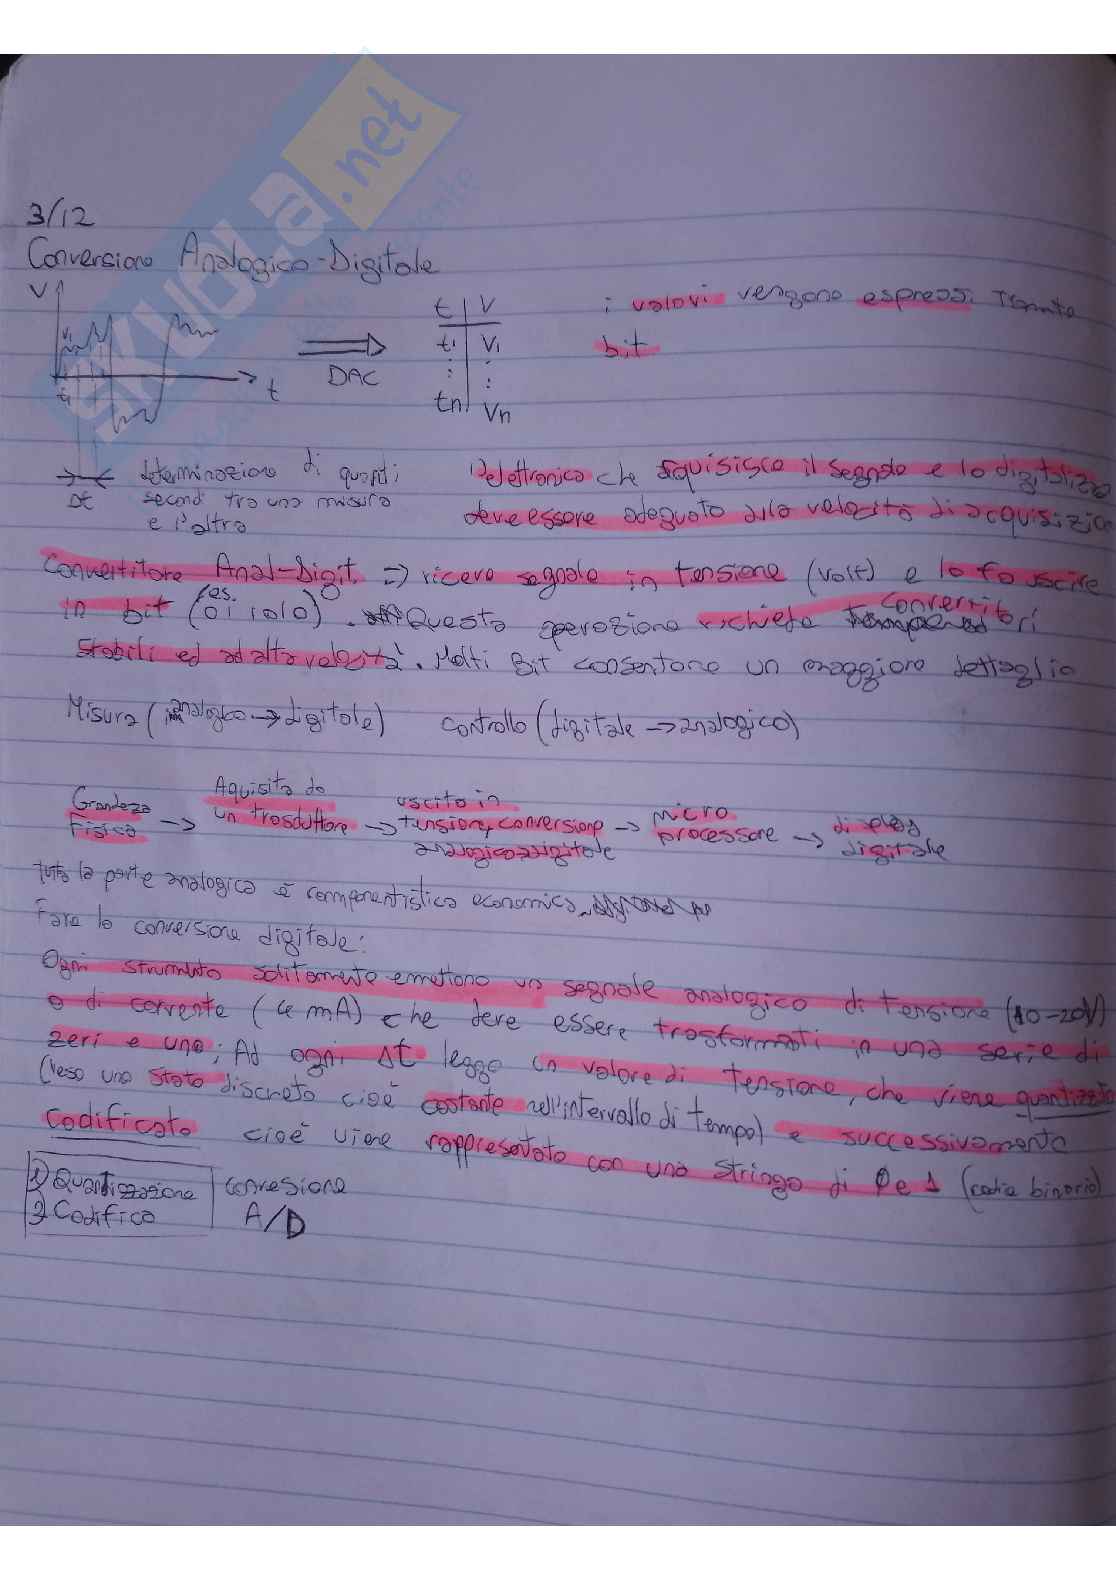 SKUOLA.net
3/12
Conversione Analogico-Digitale
V
V1
t1
t
DAC
t | V
t1 V1
: :
tn Vn
i valori vengono espressi tramite
bit
Δt
determinazione di quanti
secondi tra una misura
e l'altra
l'elettronica che aquisisce il segnale e lo digitalizza
deve essere adeguata alla velocità di acquisizione
Convertitore Anal-Digit. => riceve segnale in tensione (volt) e lo fa uscire
in bit (es. 01 1010). Questa operazione richiede convertitori
stabili ed ad alta velocità. Molti Bit consentono un maggiore dettaglio
Misura (analogico → digitale) controllo (digitale → analogico)
Grandezza
Fisica
→
Aquisita da
un trasduttore
→
uscita in
tensione, conversione
analogico digitale
→
micro
processore
→
display
digitale
tutta la parte analogica è componentistica economica
Fare la conversione digitale:
Ogni strumento solitamente emettono un segnale analogico di tensione (10-20V)
o di corrente (4 mA) che deve essere trasformati in una serie di
zeri e uno; Ad ogni Δt leggo un valore di tensione, che viene quantizzato
(reso uno stato discreto cioè costante nell'intervallo di tempo) e successivamente
codificato cioè viene rappresentato con una stringa di 0 e 1 (codice binario)
1) Quantizzazione
2) Codifica
Convesione
A/D